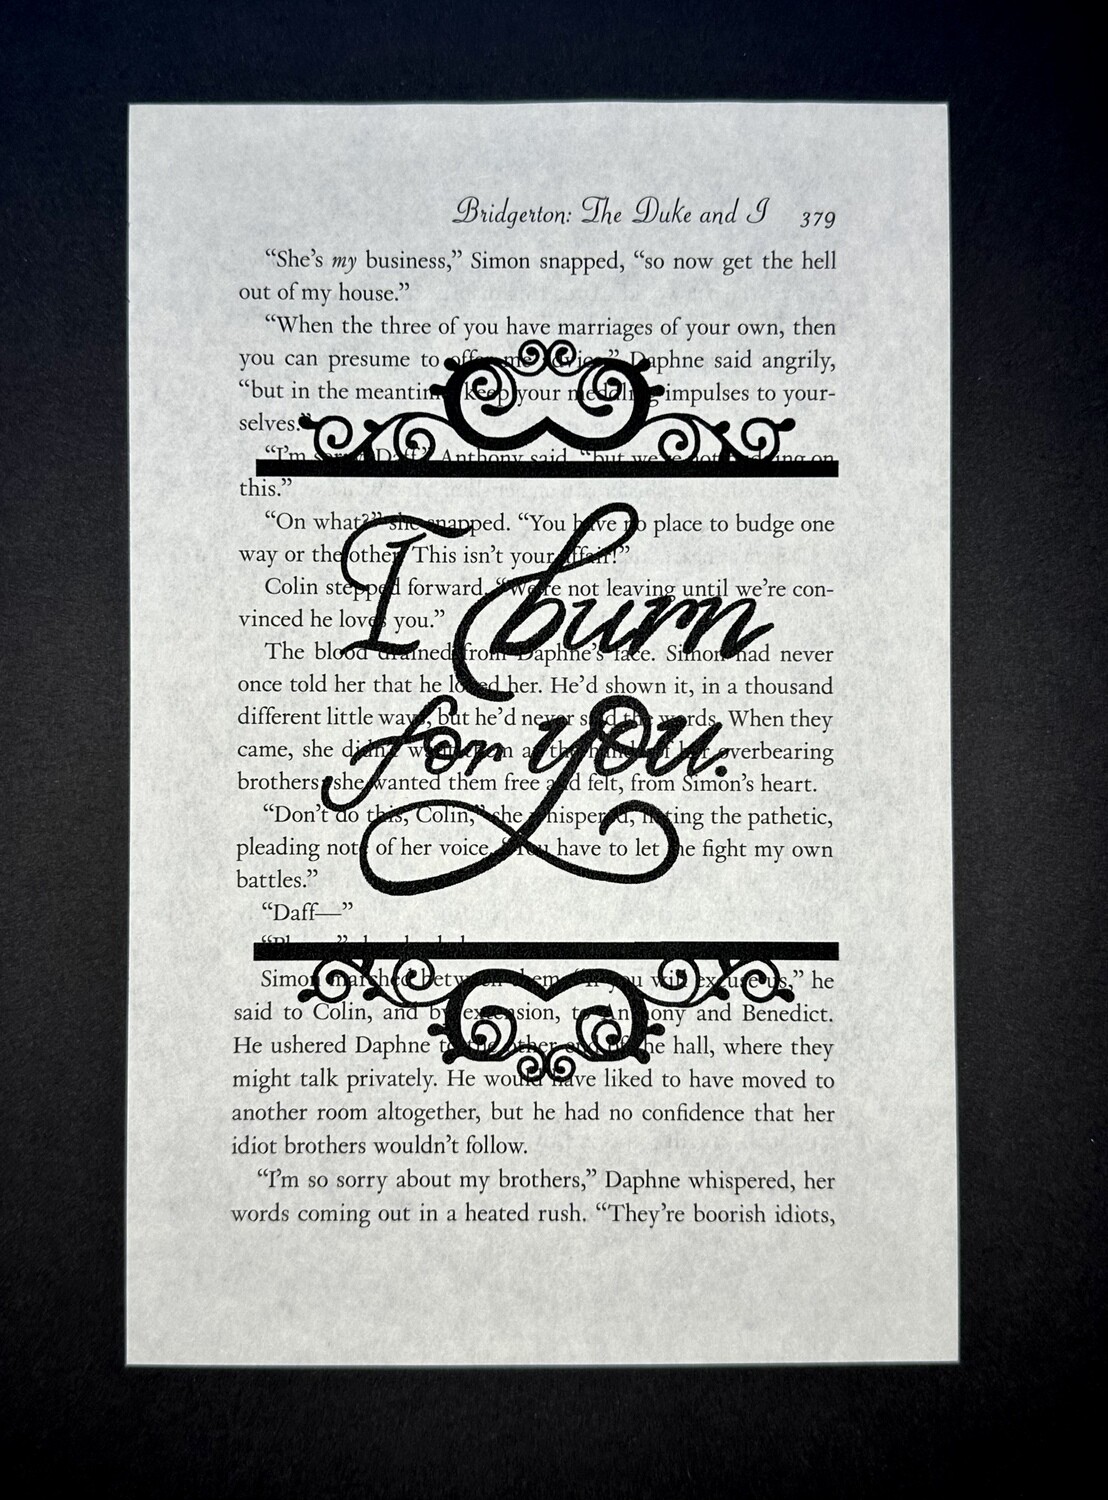 Bridgerton: The Duke and I 379
“She’s my business,” Simon snapped, “so now get the hell
out of my house.”
“When the three of you have marriages of your own, then
you can presume to offer me advice,” Daphne said angrily,
“but in the meantime keep your meddling impulses to your-
selves.”
“I’m sorry, Daff,” Anthony said, “but we’re not budging on
this.”
“On what?” she snapped. “You have no place to budge one
way or the other. This isn’t your affair!”
Colin stepped forward. “We’re not leaving until we’re con-
vinced he loves you.”
I burn
The blood drained from Daphne’s face. Simon had never
once told her that he loved her. He’d shown it, in a thousand
different little ways, but he’d never said the words. When they
came, she didn’t want them at the hands of her overbearing
for you.
brothers; she wanted them free and felt, from Simon’s heart.
“Don’t do this, Colin,” she whispered, hating the pathetic,
pleading note of her voice. “You have to let me fight my own
battles.”
“Daff—”
Simon marched between them. “If you will excuse us,” he
said to Colin, and by extension, to Anthony and Benedict.
He ushered Daphne to the other end of the hall, where they
might talk privately. He would have liked to have moved to
another room altogether, but he had no confidence that her
idiot brothers wouldn’t follow.
“I’m so sorry about my brothers,” Daphne whispered, her
words coming out in a heated rush. “They’re boorish idiots,